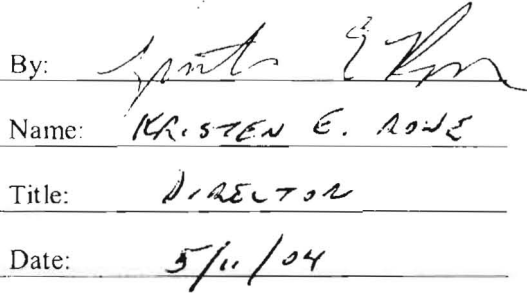 By:
Name: KRISTEN E. ROWE
Title: DIRECTOR
Date: 5/11/04